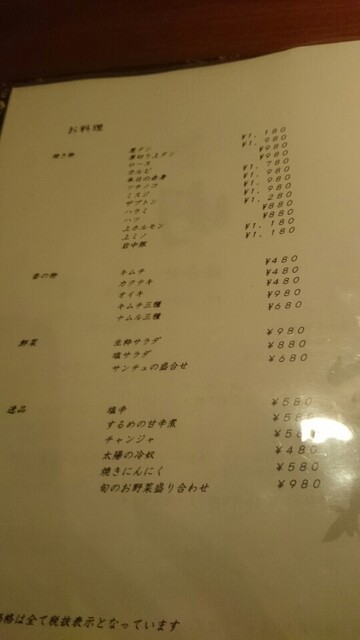 お料理
焼き物
黒タン ¥1,180
厚切り上タン ¥1,980
ロース ¥980
カルビ ¥980
本日の赤身 ¥1,780
ツチノコ ¥1,980
ミスジ ¥1,980
ザブトン ¥1,280
ハラミ ¥1,280
ハツ ¥880
上ホルモン ¥880
上ミノ ¥1,180
岩中豚 ¥1,180
香の物
キムチ ¥480
カクテキ ¥480
オイキ ¥480
キムチ三種 ¥980
ナムル三種 ¥680
鮮菜
生粋サラダ ¥980
塩サラダ ¥880
サンチュの盛合せ ¥680
逸品
塩辛 ¥580
するめの甘辛煮 ¥580
チャンジャ
太陽の冷奴 ¥480
焼きにんにく ¥580
旬のお野菜盛り合わせ ¥980
価格は全て税抜表示となっています